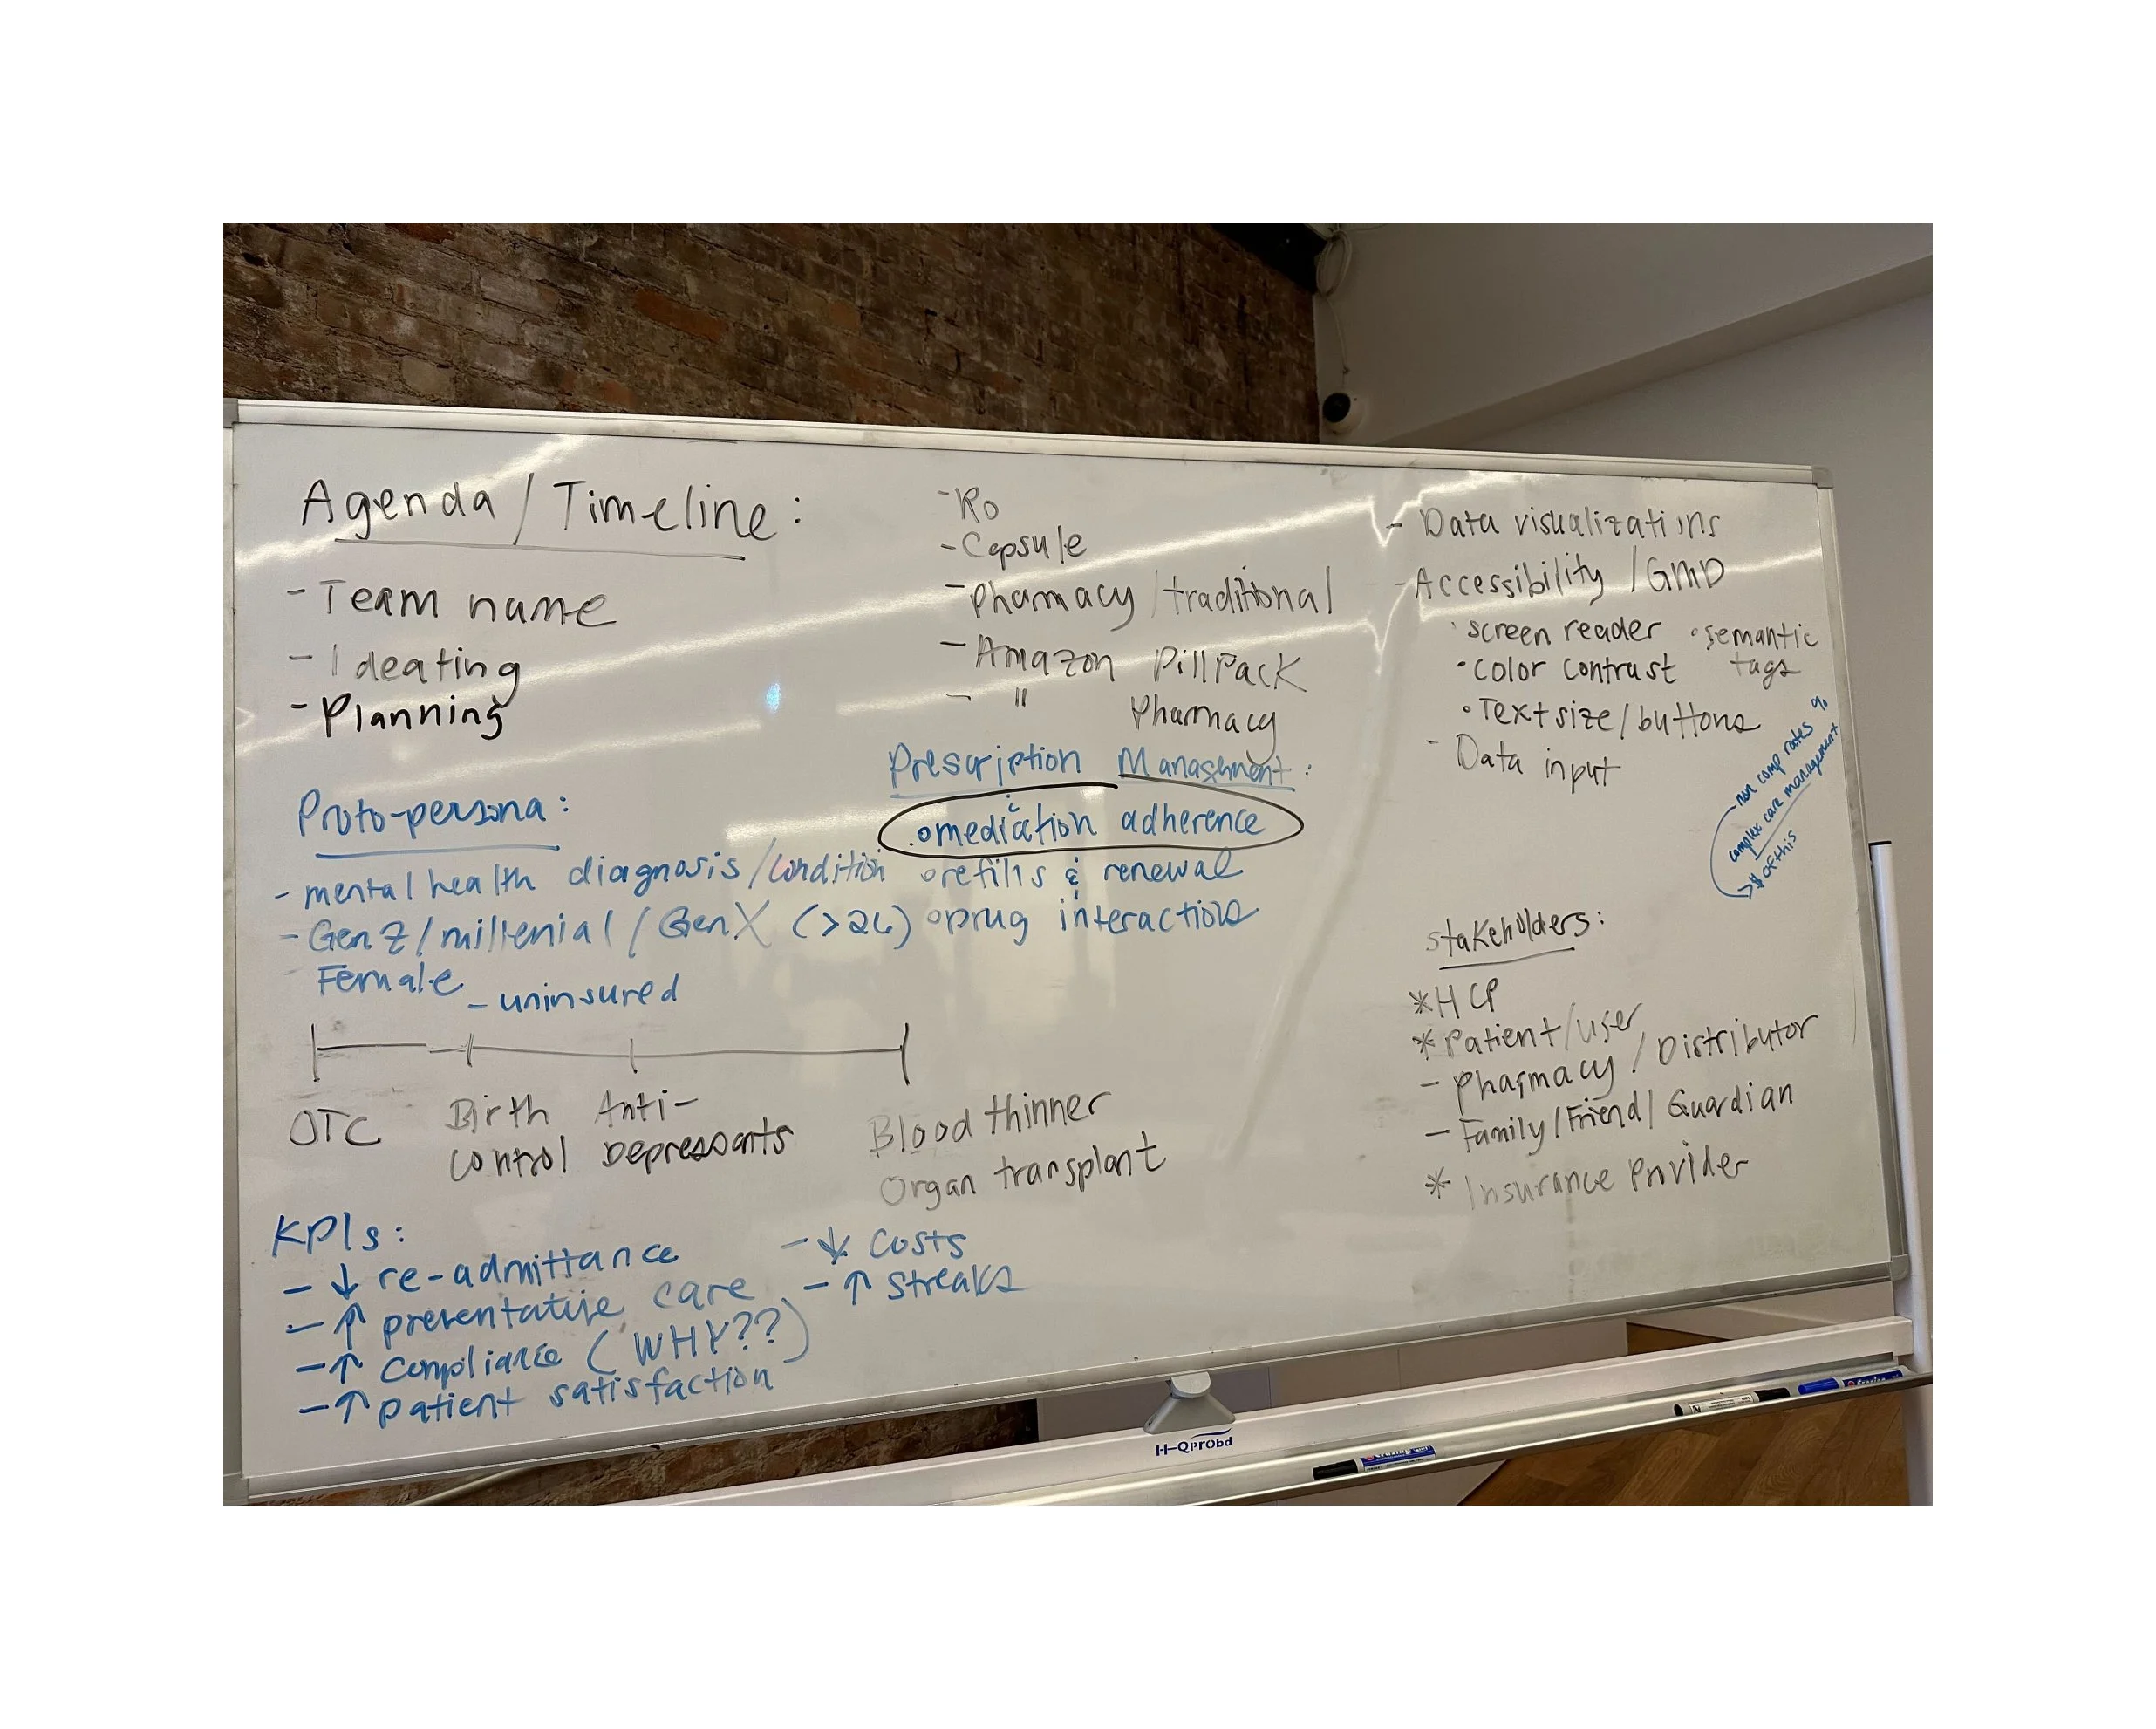 Agenda / Timeline:
- Team name
- Ideating
- Planning
- Ro
- Capsule
- Pharmacy / traditional
- Amazon PillPack
- " Pharmacy
- Data visualizations
- Accessibility / GMD
· screen reader
· semantic tags
· color contrast
· Text size / buttons
- Data input
- non comp rates %
complex care management
$ of this
Proto-persona:
- mental health diagnosis / condition
- Gen Z / millenial / Gen X (>26)
Female
- uninsured
Prescription Management:
◦ medication adherence
◦ refills & renewal
◦ Drug interactions
OTC
Birth control
Anti-Depressants
Blood thinner
Organ transplant
KPIs:
- ↓ re-admittance
- ↑ preventative care
- ↑ compliance (WHY??)
- ↑ patient satisfaction
- ↓ costs
- ↑ streaks
Stakeholders:
* HCP
* Patient / User
- Pharmacy / Distributor
- Family / Friend / Guardian
* Insurance Provider
H-Qprobd